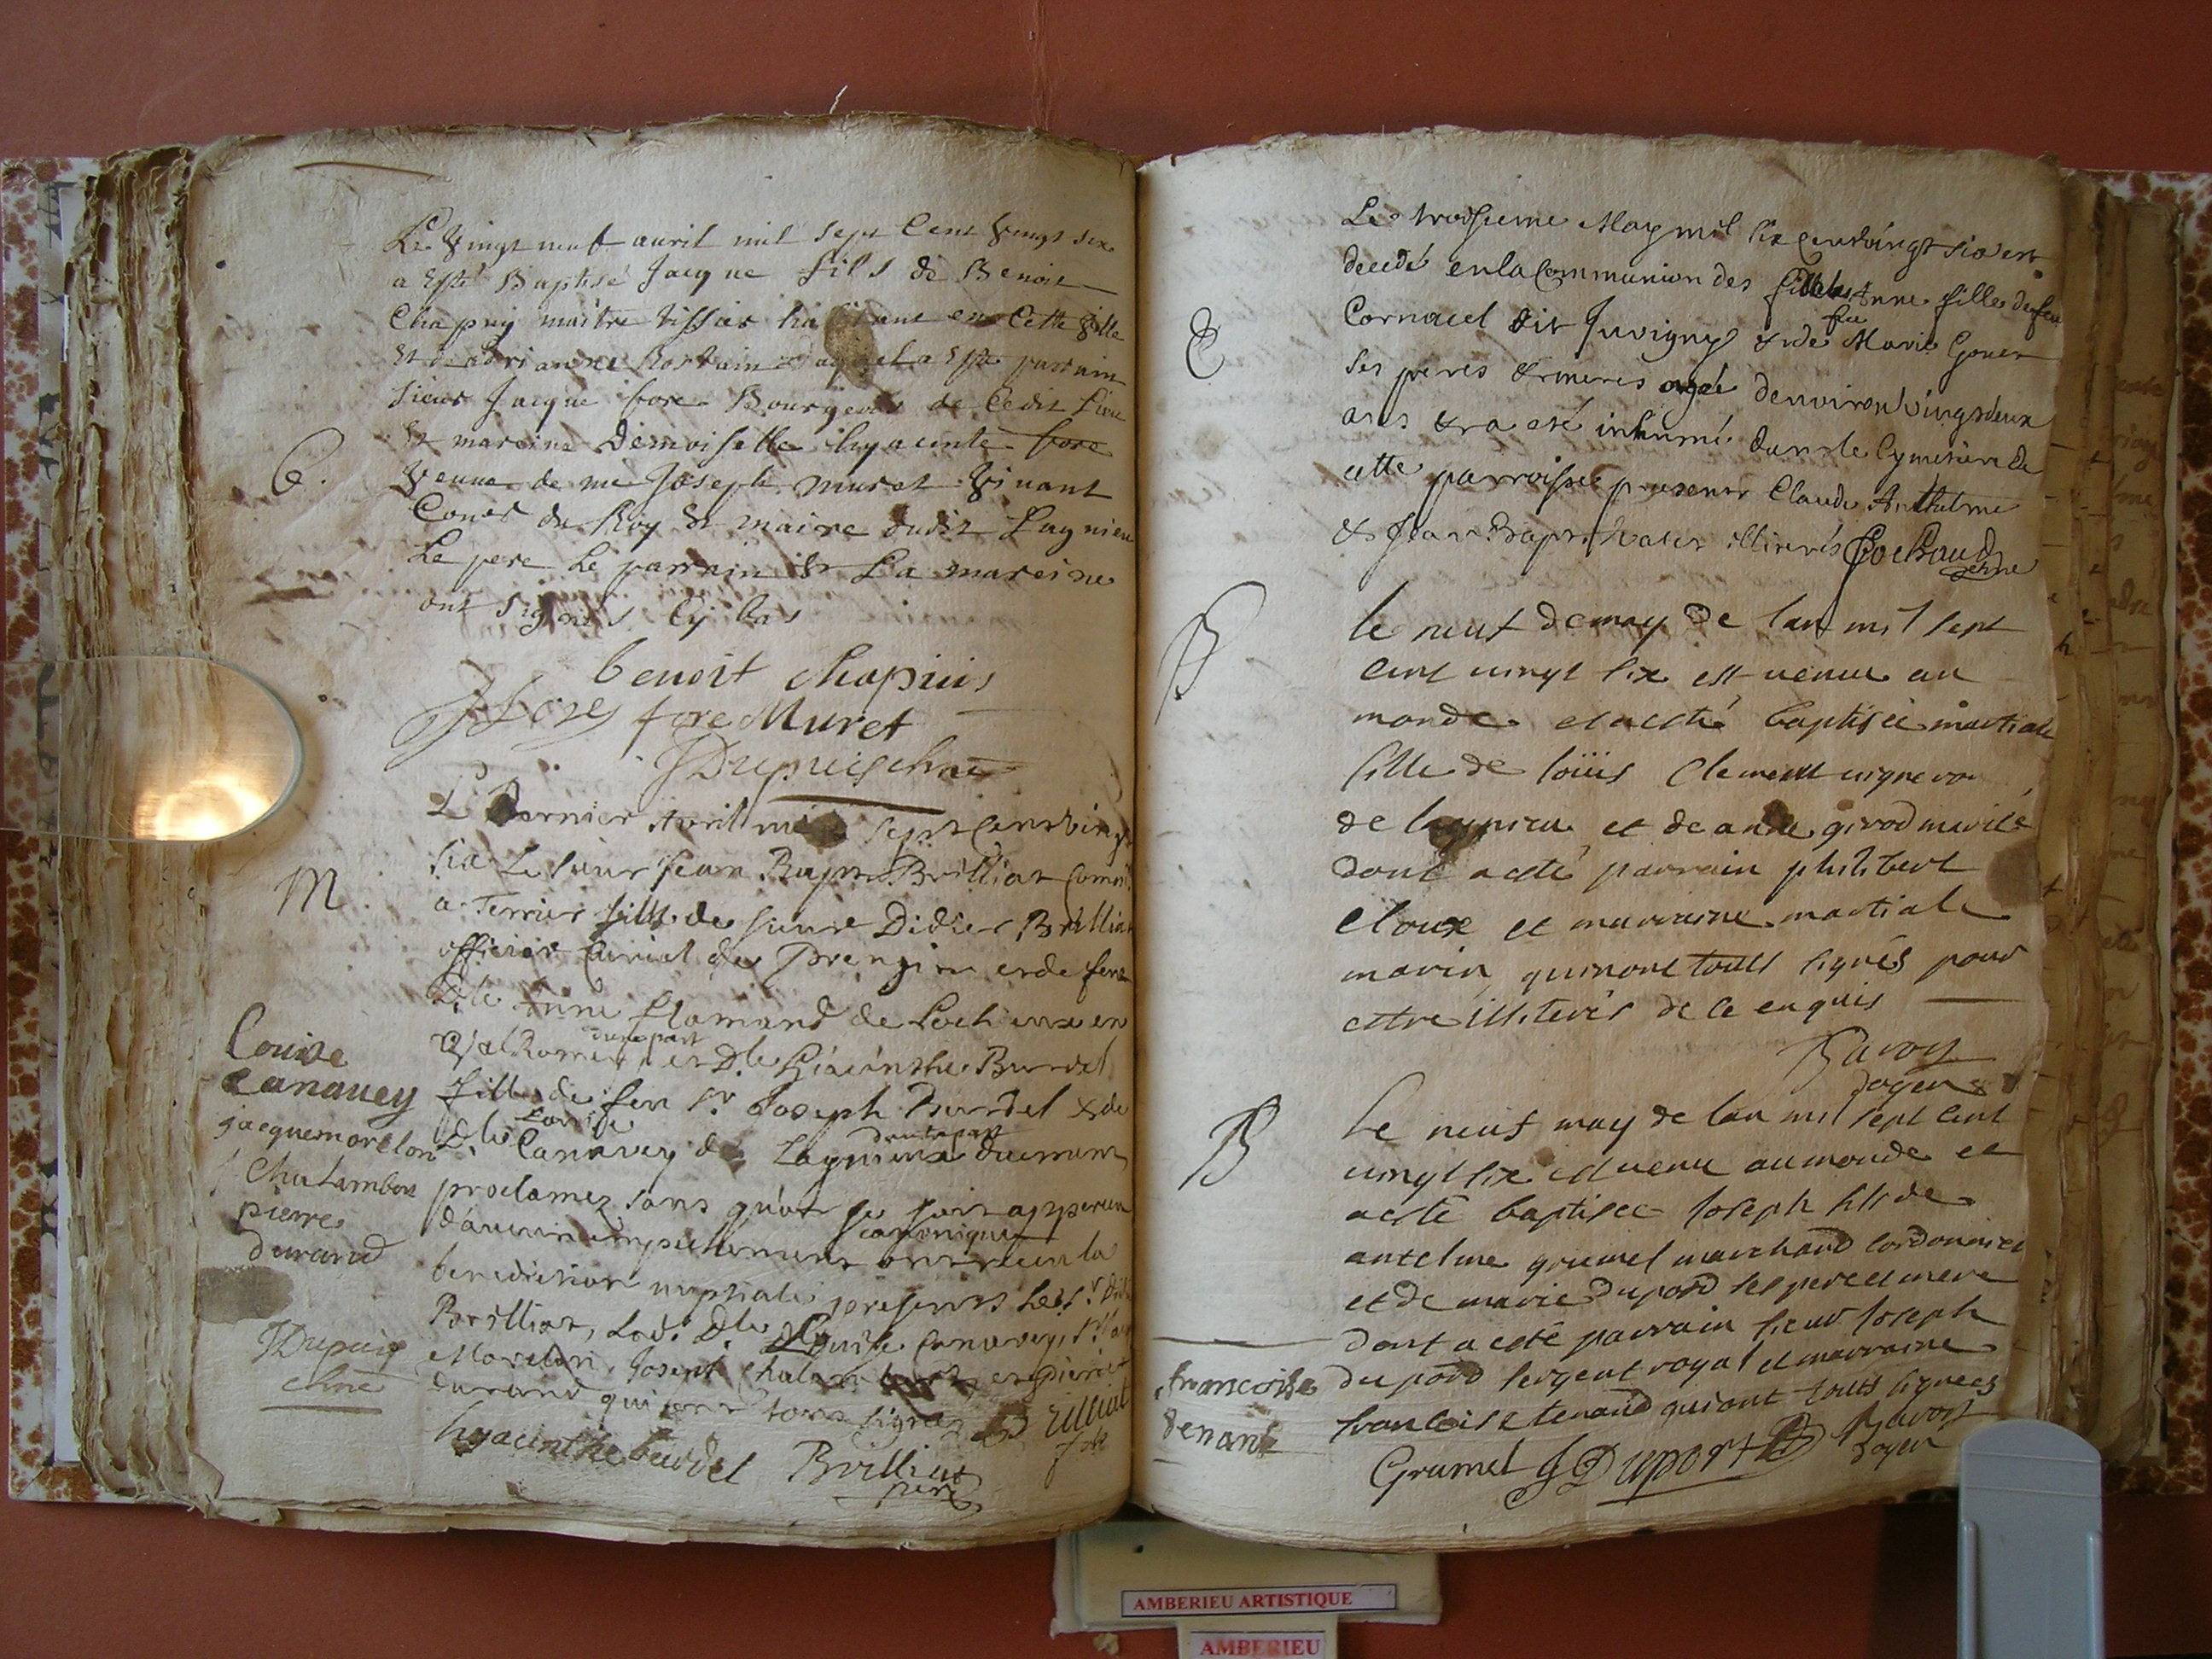 Le Vingt neuf avril mil sept Cent Vingt six
a Esté Baptisé Jacque fils de Benoit
Chapuy maitre tissier habitant en Cette Ville
Et de adrianne Rostain duquel a Esté parrain
Sieur Jacque fore Bourgeois de Cedit Lieu
Et mareine Demoiselle hyacinte fore
B.
Veuve de me Joseph Muret Vivant
Coner du Roy Et maire dudit Lagnieu
Le pere Le parrain Et La mareine
ont signés Cy bas
benoit chapuis
J fore fore Muret
JDupuis chne
M
Le Dernier Avril mil sept Cent Vingt
six Le sieur Jean Bapte Brilliat Comre
a Terrier fils de sieur Didier Brilliat
officier Curial de et de feue
Dlle Anne flamand de Lochieux en
Valromey d'une part et Dlle Hiacinthe Burdel
fille de feu Sr Joseph Burdel & de
Dlle Louise Canavey de Lagnieux d'autre part duement
proclamez sans qu'on se soit apperceu
d'aucun empechement canonique ont receu la
benediction nuptiale presents led. Sr Did.
Brilliat, Lad. Dlle Louise Canavey, Sr
Morelon, Joseph Chalambon et pierre
durand qui ont tous signez
Louise
Canavey
jacque morelon
Chalambon
pierre
durand
JDupuis
chne
hyacinthe burdel Brilliat père
Brilliat
fils
Le troisieme May mil sept Cent vingt six est
decedé en la Communion des fidelles Anne fille de feu
E
Cornuel dit Juvigny & de feu Marie
ses peres & meres agée d'environ vingt deux
ans & a esté inhumé dans le Cymetiere de
cette parroisse presents Claude Anthelme
& Jean Bapt. illiterés Cochaud
chne
B
le neuf de may de lan mil sept
cent vingt six est venue au
monde et a esté baptisée martiale
fille de loüis Clement vigneron
de lagnieu et de anne girod mariés
dont a esté parrain philibert
cloux et marraine martiale
marin qui n'ont touts signés pour
estre illiterés de ce enquis
Ravot
doyen
B
Le neuf may de lan mil sept cent
vingt six est venu au monde et
a esté baptisée Joseph fils de
antelme grumel marchand cordonnier
et de marie du pord ses pere et mere
dont a esté parrain sieur Joseph
du pord sergent royal et marraine
francoise tenand qui ont touts signees
francoise
tenant
Grumel J Duport Ravot
doyen
AMBERIEU ARTISTIQUE
AMBERIEU